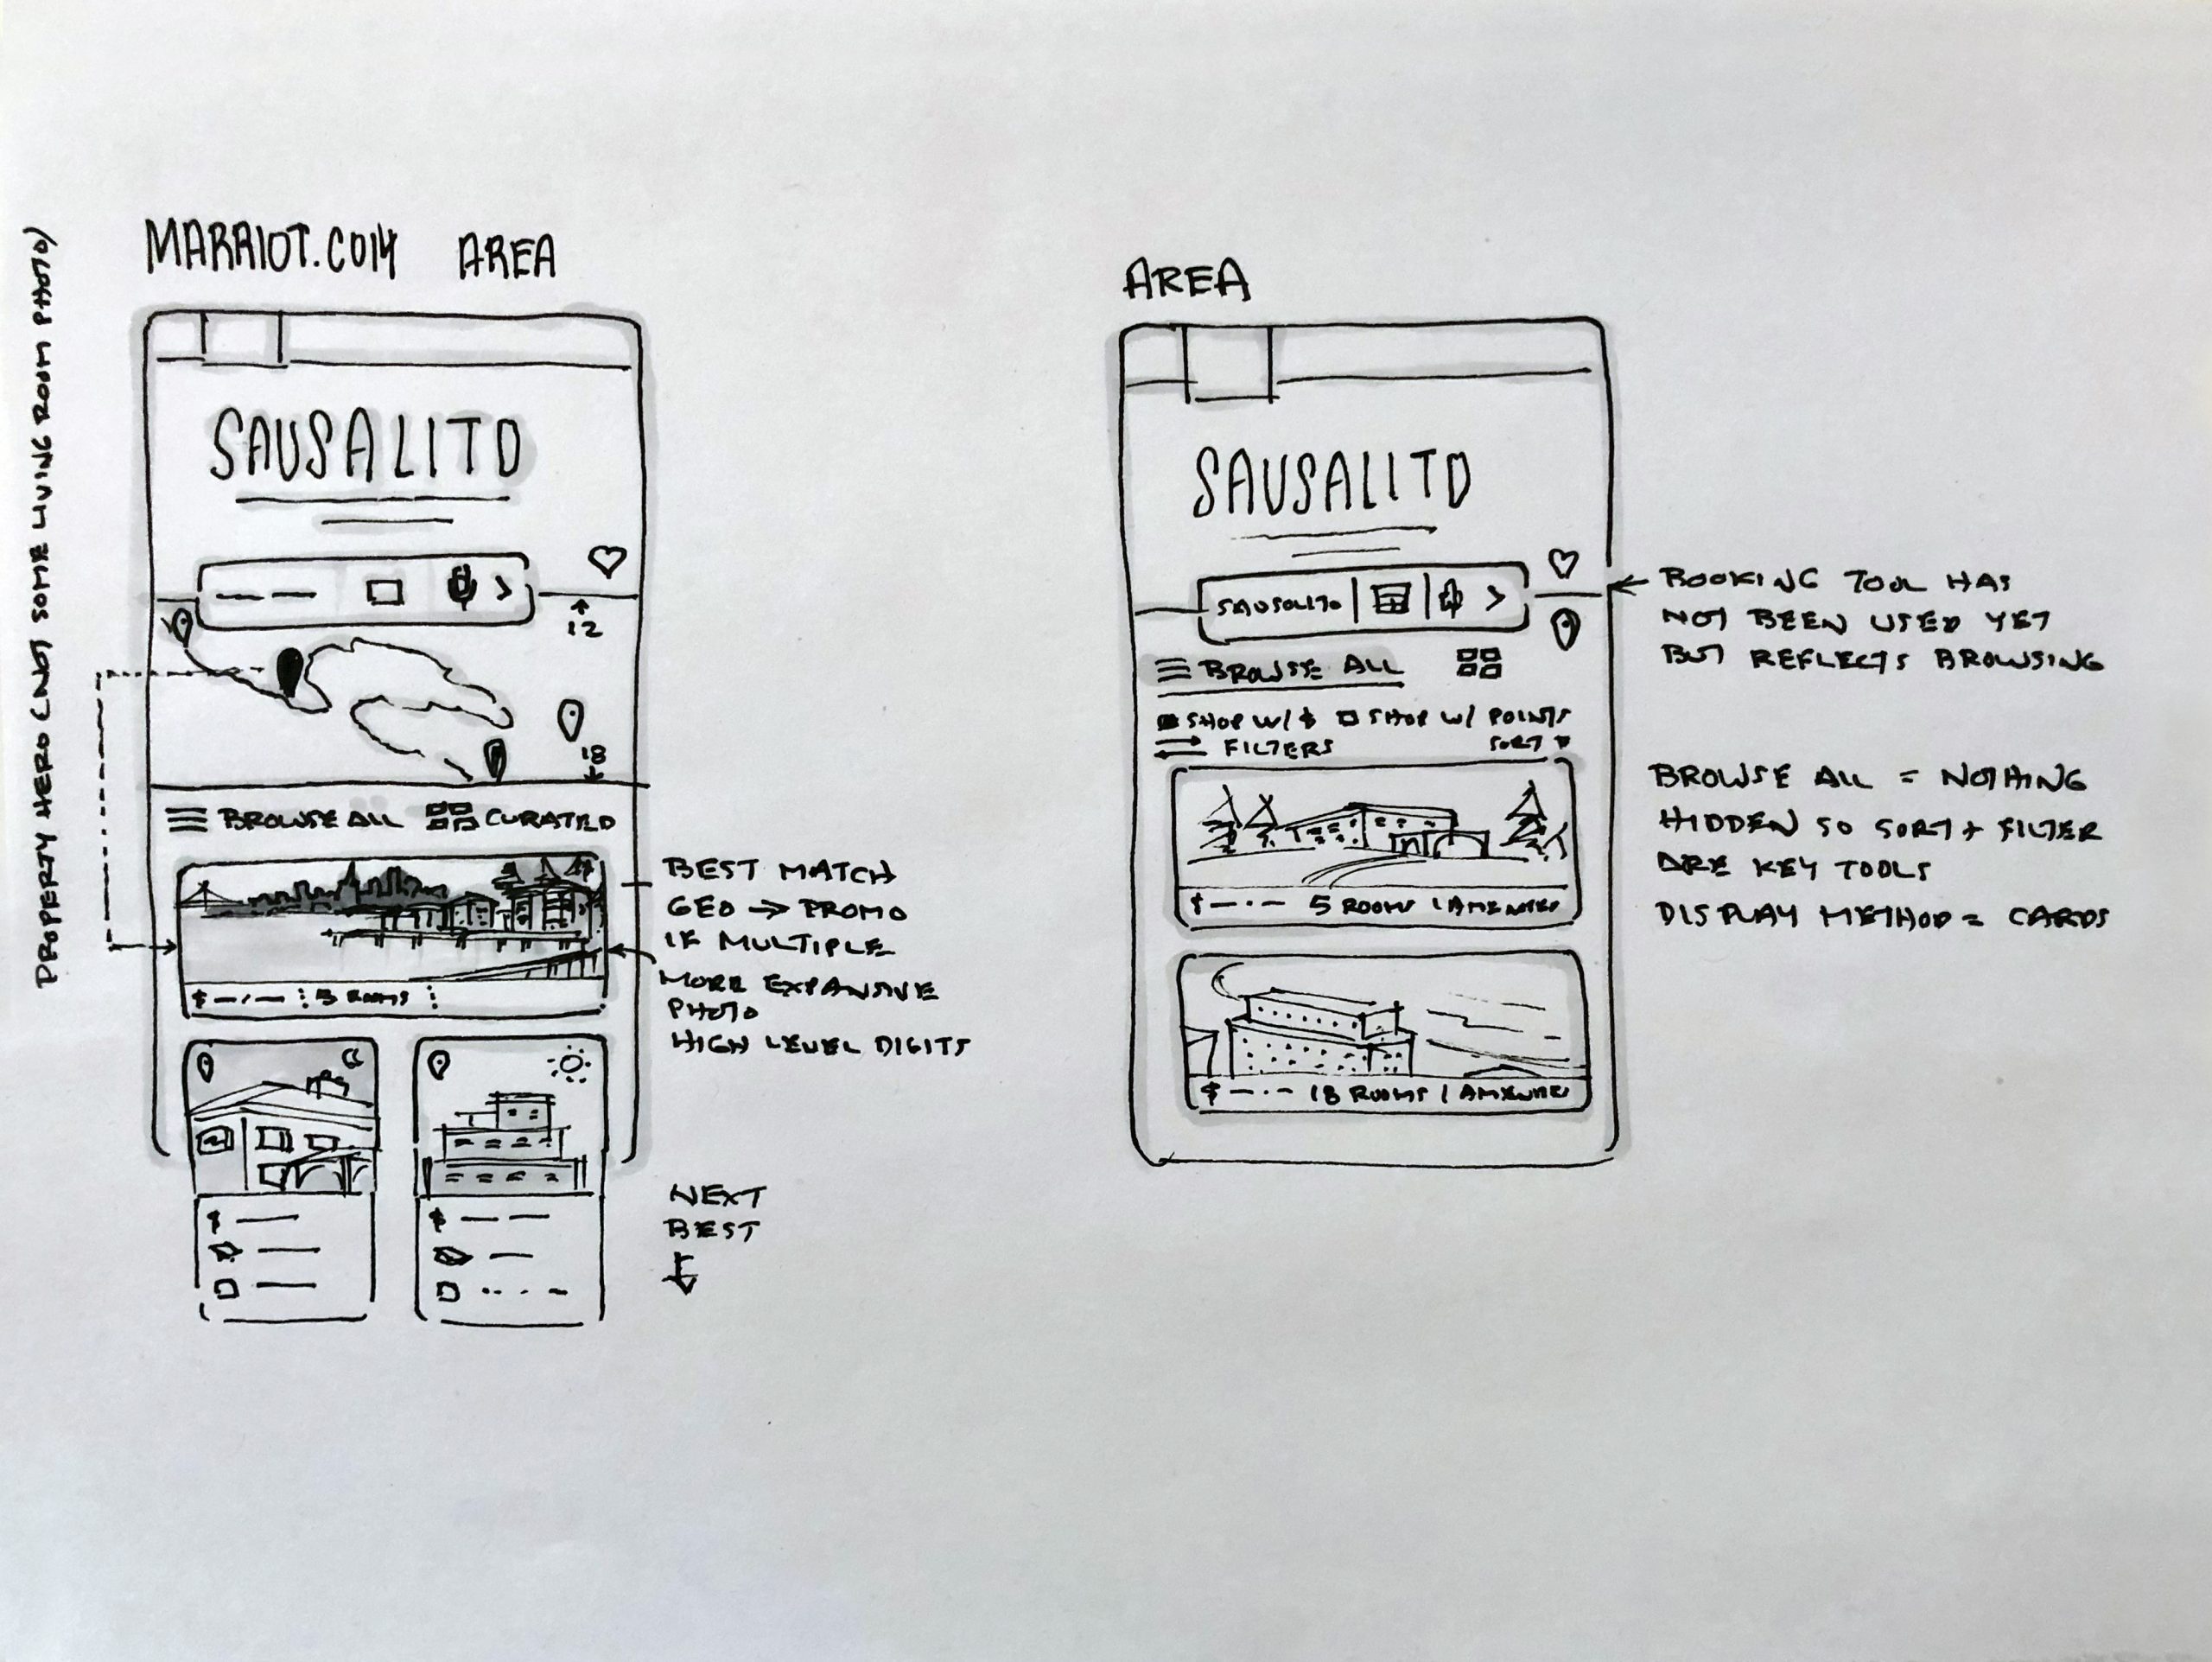 PROPERTY HERO (NOT SOME LIVING ROOM PHOTO)
MARRIOT.COM AREA
SAUSALITO
12
18
BROWSE ALL CURATED
$ 5 ROOMS
BEST MATCH
GEO → PROMO
IF MULTIPLE
MORE EXPANSIVE
PHOTO
HIGH LEVEL DIGITS
$
$
NEXT
BEST
AREA
SAUSALITO
SAUSOLITO
BROWSE ALL
SHOP W/ $ SHOP W/ POINTS
FILTERS SORT
$ 5 ROOMS | AMENITIES
$ 18 ROOMS | AMENITIES
BOOKING TOOL HAS
NOT BEEN USED YET
BUT REFLECTS BROWSING
BROWSE ALL = NOTHING
HIDDEN SO SORT + FILTER
ARE KEY TOOLS
DISPLAY METHOD = CARDS